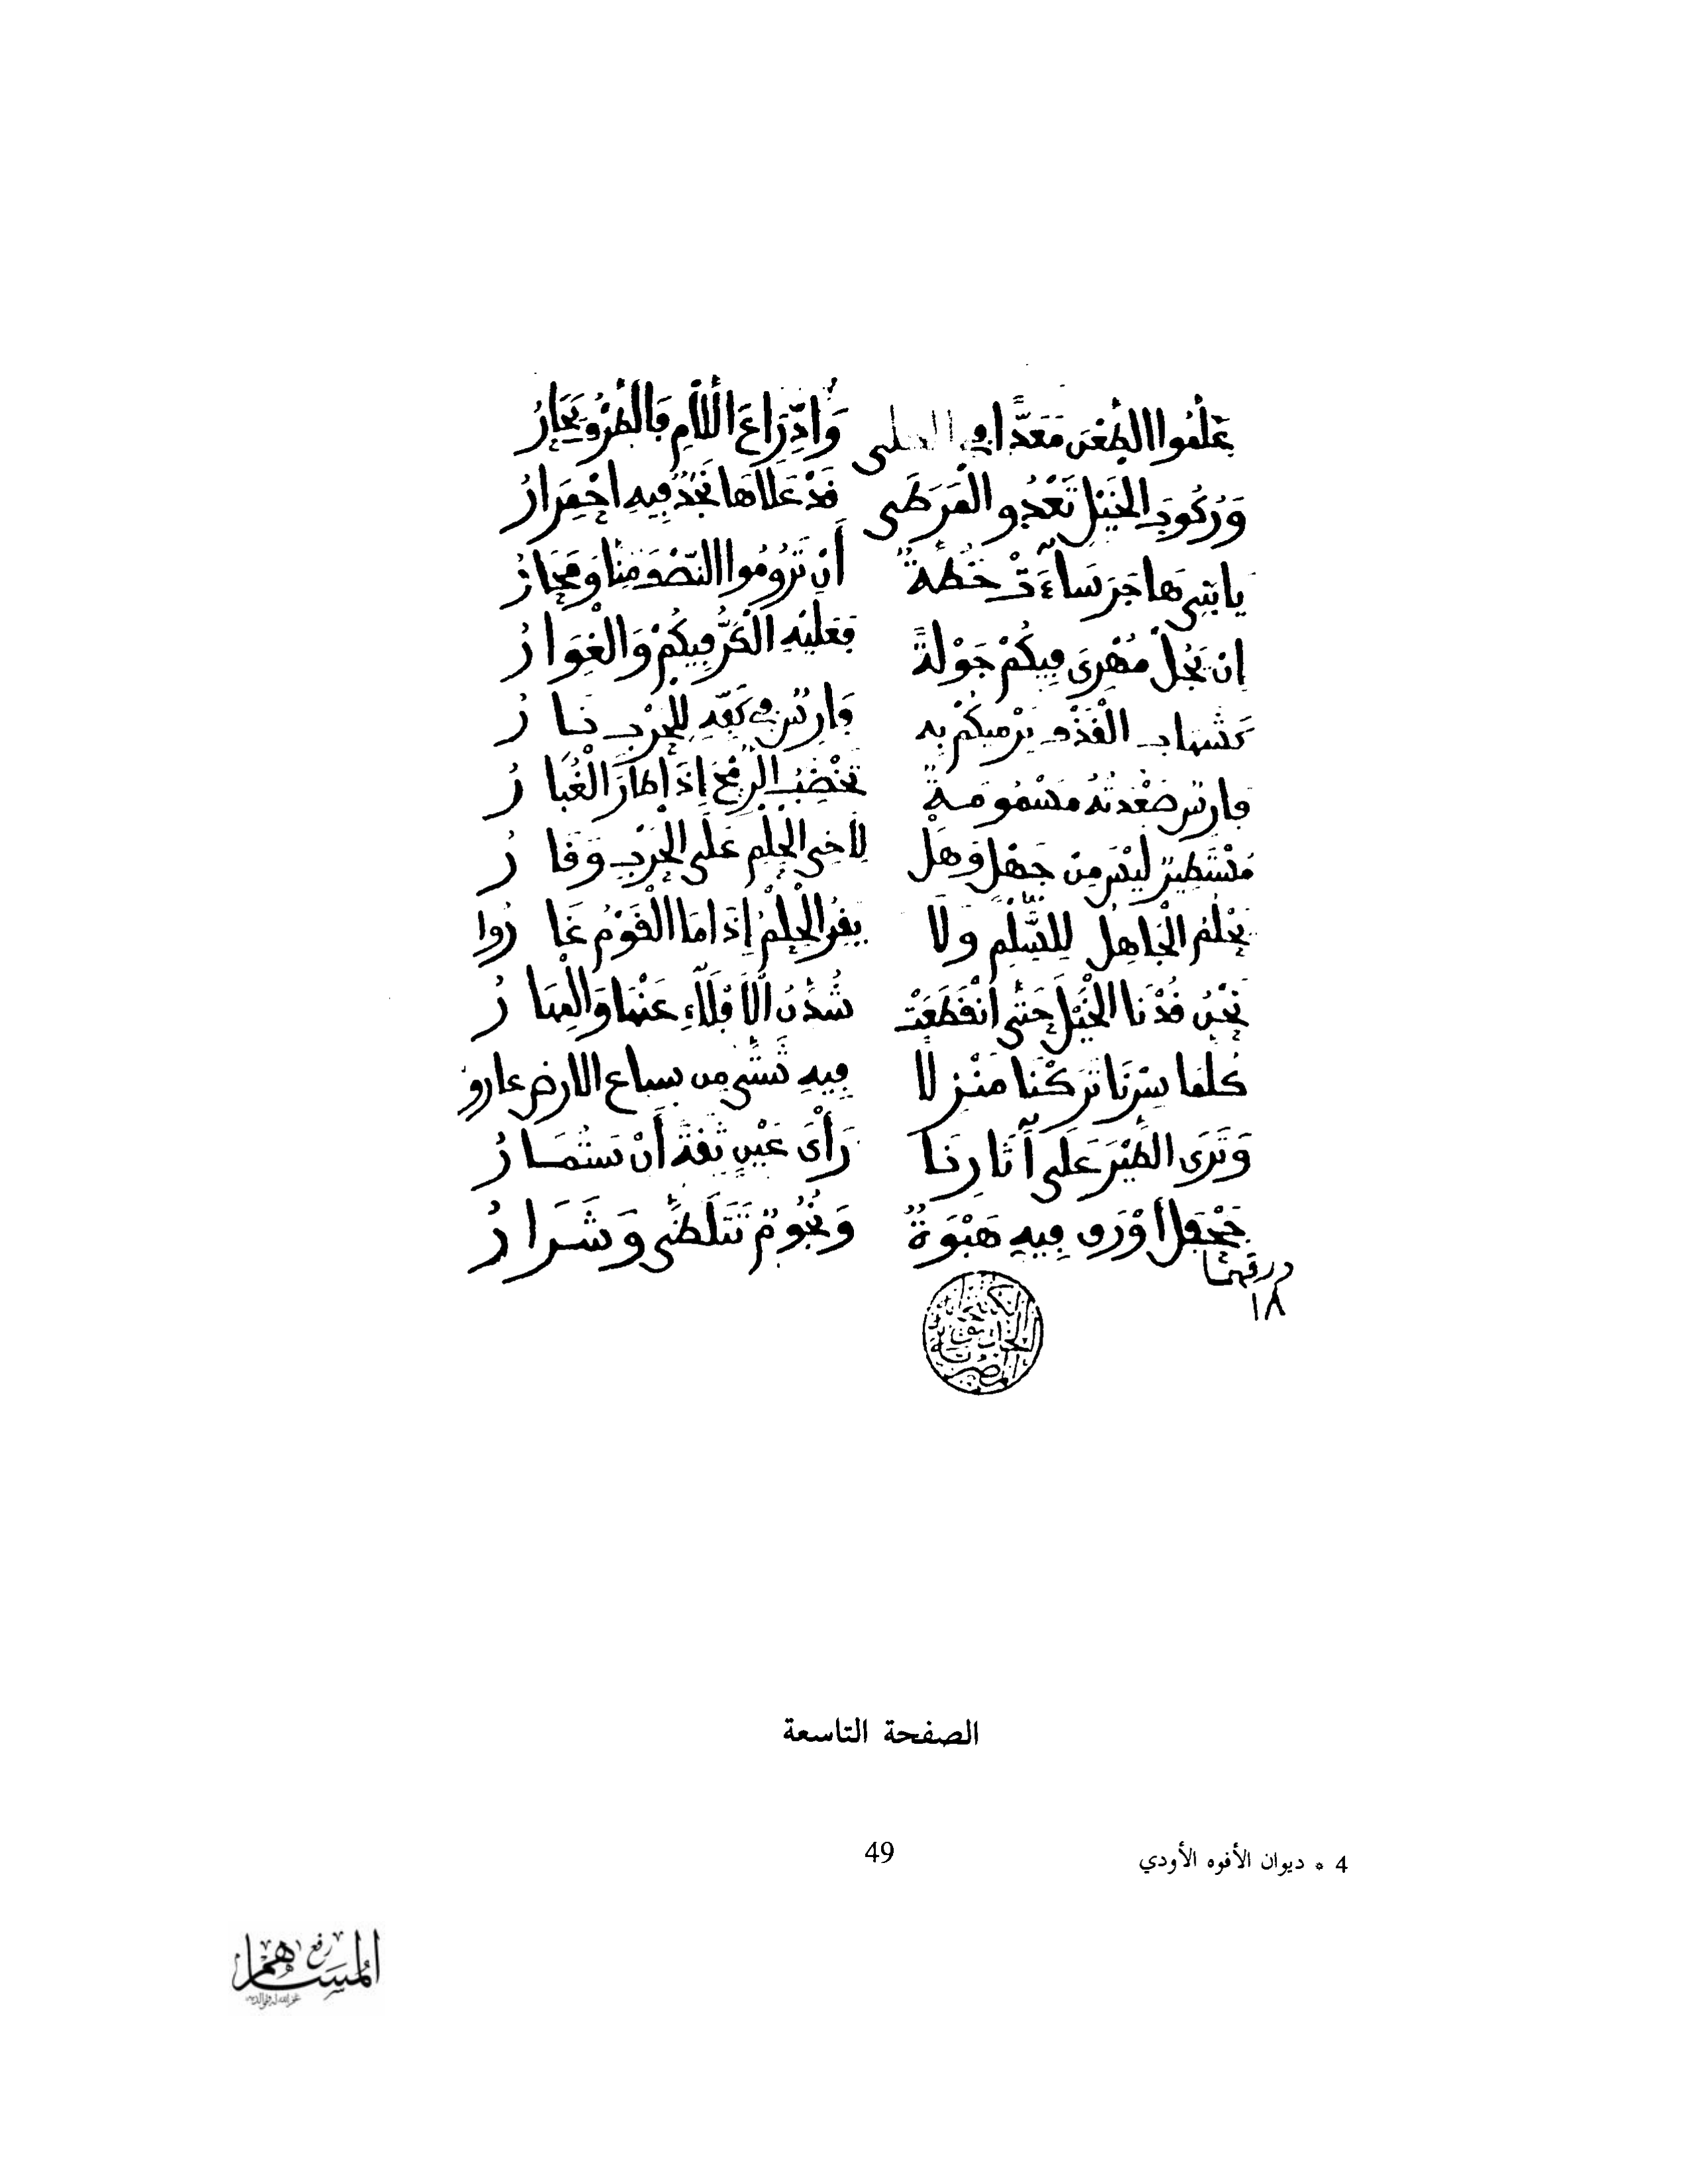 عَلَّمُوا الطَّعْنَ مَعَدًّا في الكلى وَادِّرَاعَ اللَّأْمِ فَالطَّرْفُ يَحَارُ
وَرُكُوبَ الخَيْلِ تَعْدُو المَرَطَى قَدْ عَلَاهَا نَجَدٌ فِيهِ احْمِرَارُ
يا بَنِي هَاجَرَ سَاءَتْ خُطَّةً أَنْ تَرُومُوا النِّصْفَ مِنَّا وَمُجَارُ
إِنْ يَجُلْ مُهْرِيَ فِيكُمْ جَوْلَةً فَعَلَيْهِ الْكَرُّ فِيكُمْ وَالْغِوَارُ
كَشِهَابِ الْقَذْفِ يَرْمِيكُمْ بِهِ فَارِسٌ فِي كَفِّهِ لِلْحَرْبِ نَارُ
فَارِسٌ صَعْدَتُهُ مَسْمُومَةٌ تَخْضِبُ الرُّمْحَ إِذَا طَارَ الْغُبَارُ
مُسْتَطِيرٌ لَيْسَ مِنْ جَهْلٍ وَهَلْ لِأَخِي الْحِلْمِ عَلَى الْحَرْبِ وَقَارُ
يَحْلُمُ الْجَاهِلُ لِلسِّلْمِ وَلَا يَقِرُ الْحِلْمُ إِذَا مَا الْقَوْمُ غَارُوا
نَحْنُ قُدْنَا الْخَيْلَ حَتَّى انْقَطَعَتْ شُدُنُ الْأَفْلَاءِ عَنْهَا وَالْمِهَارُ
كُلَّمَا سِرْنَا تَرَكْنَا مَنْزِلًا فِيهِ شَتَّى مِن سباع الارض غاروا
وَتَرَى الطَّيْرَ عَلَى آثَارِنَا رَأْيَ عَيْنٍ ثِقَةً أَنْ سَتُمَارُ
جَحْفَلٌ أَوْرَقَ فِيهِ هَبْوَةٌ وَنُجُومٌ تَتَلَظَّى وَشَرَارُ
ورقهما
١٨
الصفحة التاسعة
4 * ديوان الأفوه الأودي
49
رفع
المساهم
غفر الله له ولوالديه